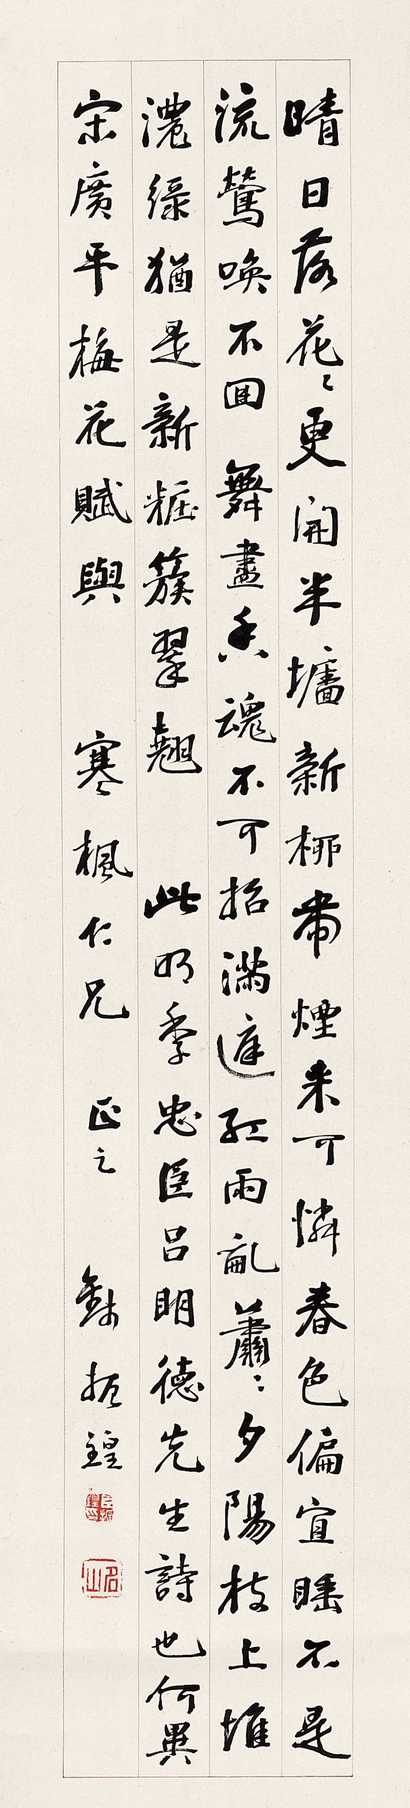 晴日落花〻更開半墻新柳帶煙來可憐春色偏宜睡不是
流鶯喚不回 舞盡香魂不可招滿庭紅雨亂蕭〻夕陽枝上堆
濃綠猶是新粧簇翠翹 此明季忠臣呂明德先生詩也何異
宋廣平梅花賦與 寒楓仁兄 正之 錢振鍠
名山